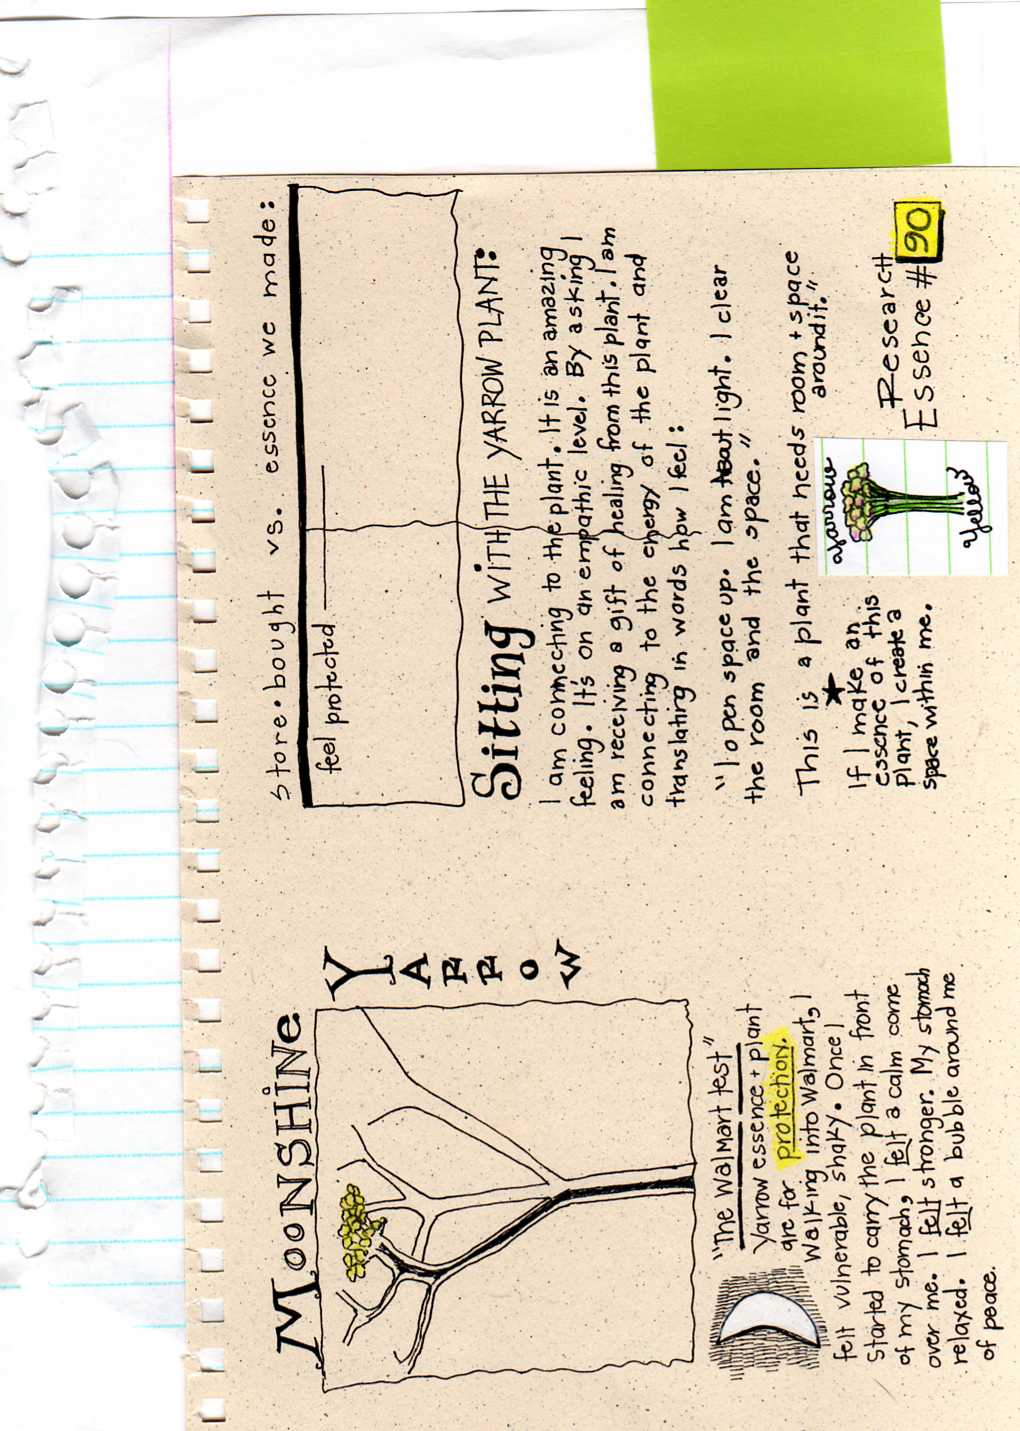 MOONSHINE
YARROW
"The Walmart test"
Yarrow essence + plant
are for protection.
Walking into Walmart, I
felt vulnerable, shaky. Once I
started to carry the plant in front
of my stomach, I felt a calm come
over me. I felt stronger. My stomach
relaxed. I felt a bubble around me
of peace.
Store•bought vs. essence we made:
feel protected
Sitting WITH THE YARROW PLANT:
I am connecting to the plant. It is an amazing
feeling. It's on an empathic level. By asking I
am receiving a gift of healing from this plant. I am
connecting to the energy of the plant and
translating in words how I feel:
"I open space up. I am light. I clear
the room and the space."
This is a plant that needs room + space
around it."
★
If I make an
essence of this
plant, I create a
space within me.
yarrow
yellow
Research
Essence # 90